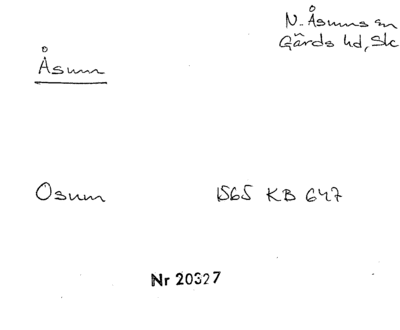 N. Åsums sn
Gärds hd, Sk
Åsum
Osum 1565 KB 647
Nr 20327